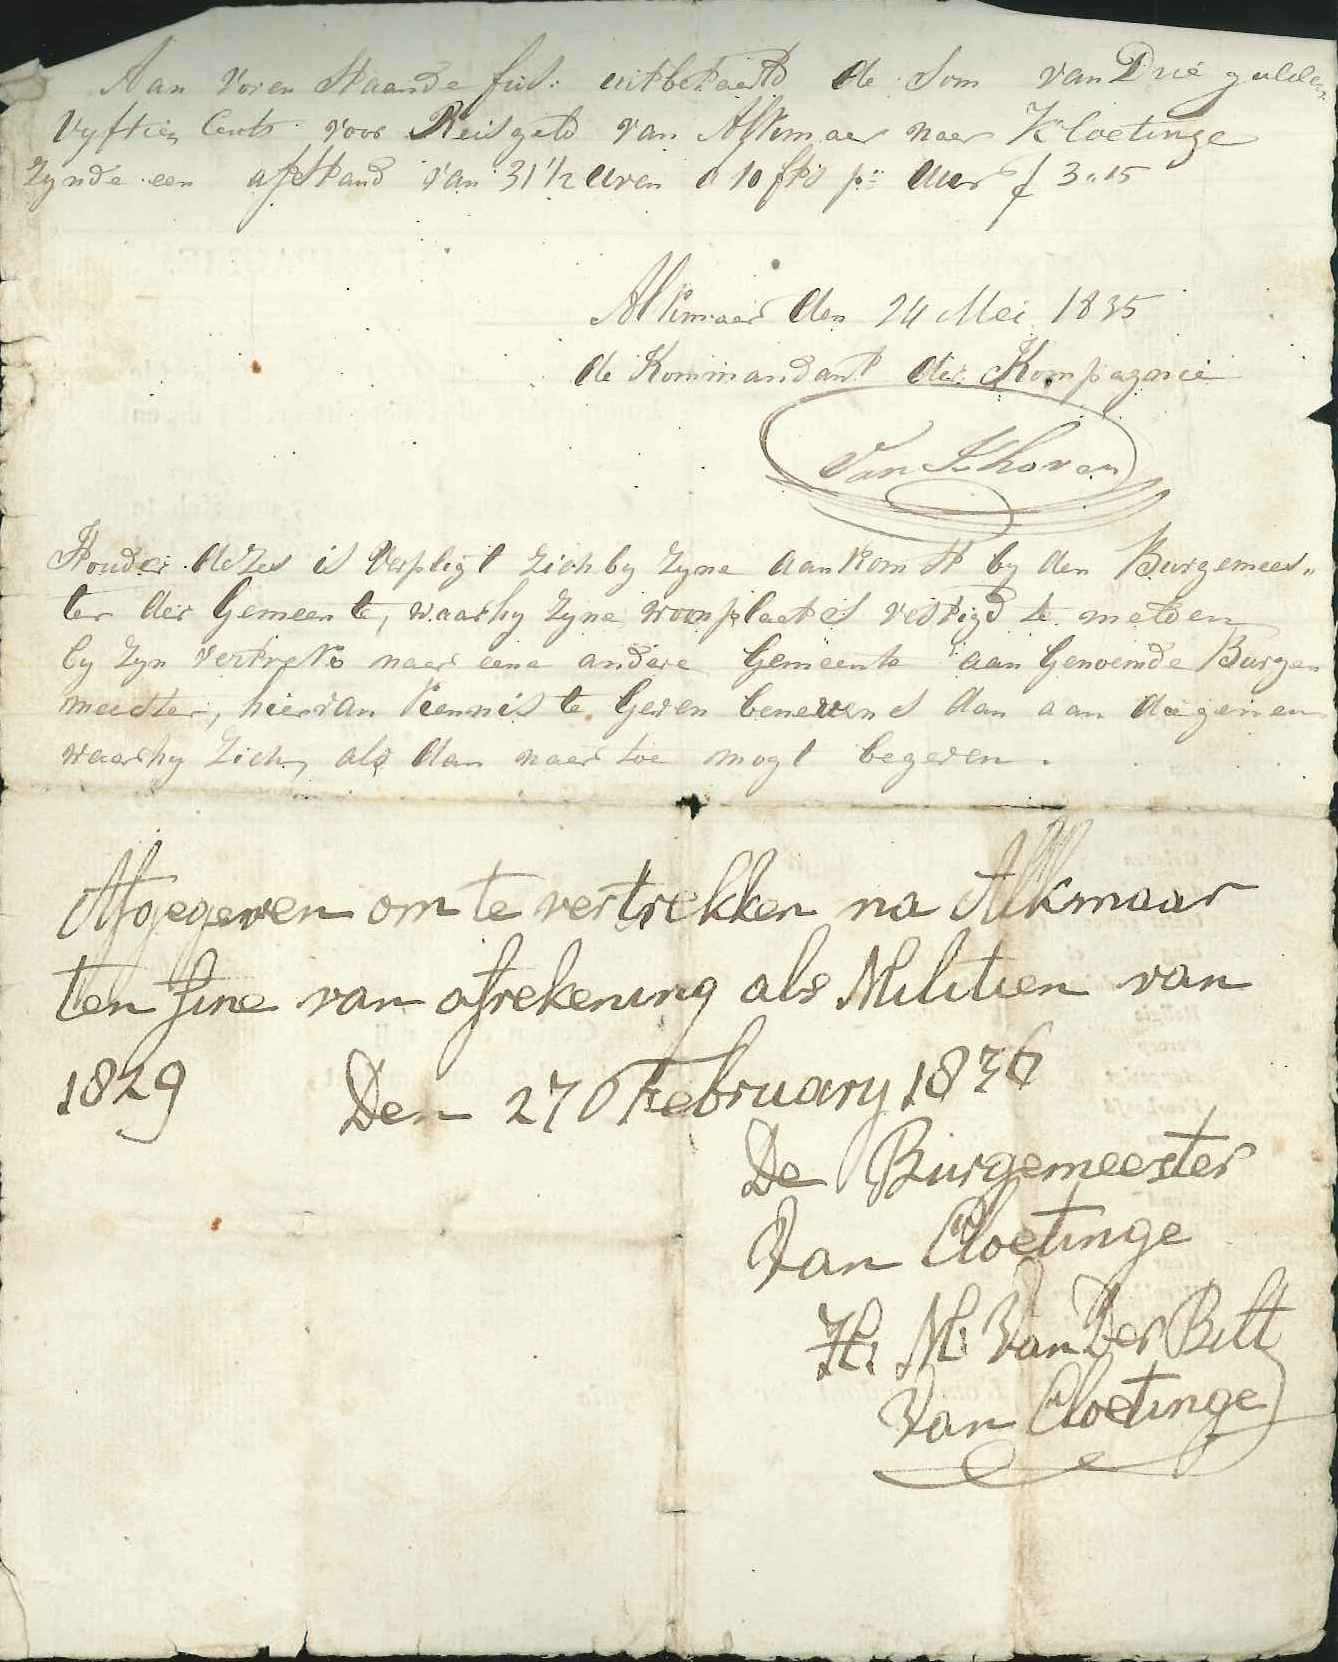 Aan voren staande fus: uitbetaald de Som van Drie gulden
vyftien Cents voor Reisgeld van Alkmaar naar Kloetinge
Zynde een afstand van 31 1/2 uren a 10 pr uur f 3"15
Alkmaar den 24 Mei 1835
de Kommandant der Kompagnie
Van
Houder dezes is verpligt zich by zyne aankomst by den Burgemees"
ter der Gemeente, waarby zyne woonplaats is vestigd te melden
by zyn vertrek naar eene andere Gemeente aan Genoemde Burge
meester, hiervan kennis te Geven benevens dan aan degenen
waarhy zich, als dan naar toe mogt begeven.
Afgegeven om te vertrekken na Alkmaar
ten fine van afrekening als Militien van
1829 Den 27 February 1836
De Burgemeester
Van Cloetinge
H. M. Van Der Bilt
Van Cloetinge